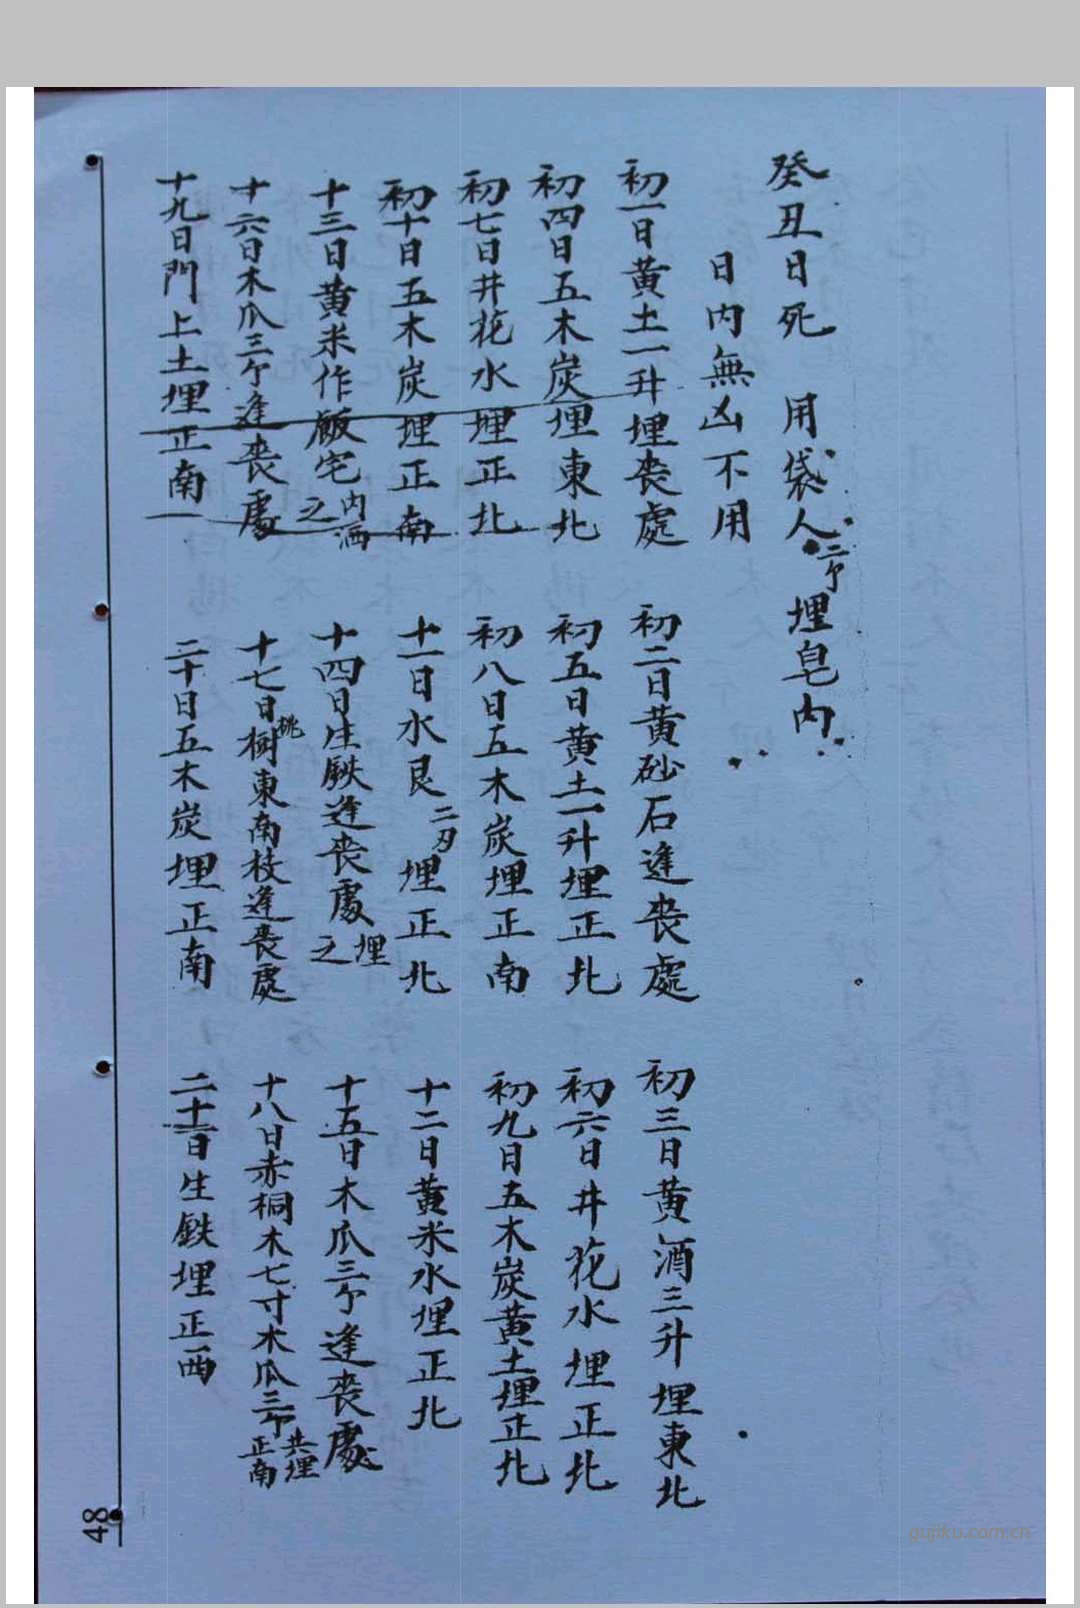 癸丑日死 用袋人三个埋皂内
日内無凶不用
初一日黄土一升埋丧處
初二日黄砂石逢丧處
初三日黄酒三升埋東北
初四日五木炭埋東北
初五日黄土一升埋正北
初六日井花水埋正北
初七日井花水埋正北
初八日五木炭埋正南
初九日五木炭黄土埋正北
初十日五木炭埋正南
十一日水艮二刃埋正北
十二日黄米水埋正北
十三日黄米作飯宅内洒之
十四日生鉄逢丧處埋之
十五日木瓜三个逢丧處
十六日木瓜三个逢丧處
十七日桃樹東南枝逢丧處
十八日赤桐木七寸木瓜三个共埋正南
十九日門上土埋正南
二十日五木炭埋正南
二十一日生鉄埋正西
48
gujiku.com.cn